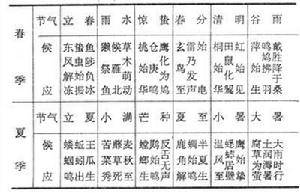 春季
节气 立春 雨水 惊蛰 春分 清明 谷雨
候应
东风解冻
蛰虫始振
鱼陟负冰
獭祭鱼
候雁北
草木萌动
桃始华
仓庚鸣
鹰化为鸠
玄鸟至
雷乃发声
始电
桐始华
田鼠化
虹始见
萍始生
鸣鸠拂羽
戴胜降于桑
夏季
节气 立夏 小满 芒种 夏至 小暑 大暑
候应
蝼蝈鸣
蚯蚓出
王瓜生
苦菜秀
靡草死
麦秋至
螳螂生
始鸣
反舌无声
鹿角解
蜩始鸣
半夏生
温风至
蟋蟀居壁
鹰始
腐草为萤
土润溽暑
大雨时行